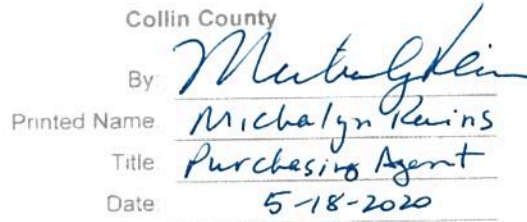 Collin County
By
Printed Name Michalyn Rains
Title Purchasing Agent
Date 5-18-2020